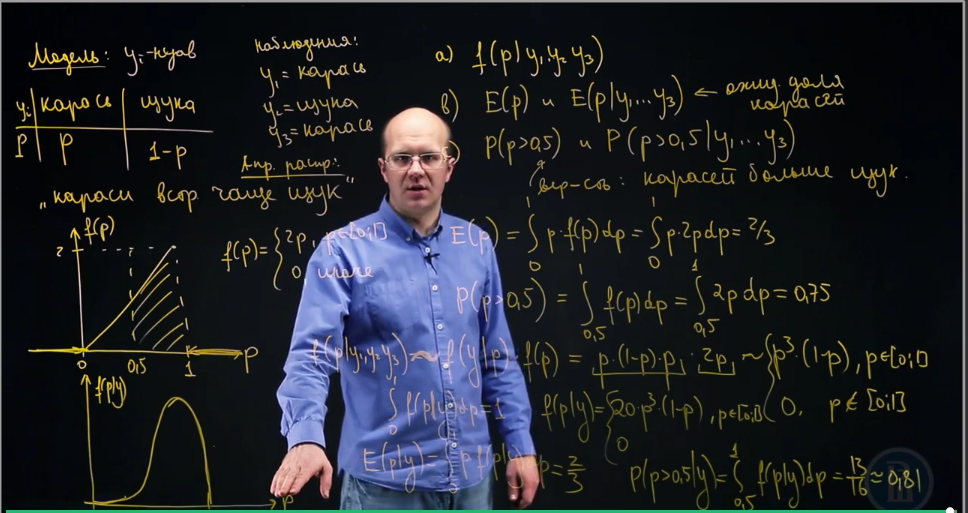 Модель: yᵢ - независ
yᵢ | карась | щука
P | p | 1-p
наблюдения:
y₁ = карась
y₂ = щука
y₃ = карась
Апр. распр.:
"караси встр чаще щук"
f(p)
2
0 0,5 1 p
f(p) = { 2p, p∈[0;1]
0, иначе
f(p|y)
p
а) f(p|y₁,y₂,y₃)
в) E(p) и E(p|y₁...y₃) ← ожид. доля карасей
P(p>0,5) и P(p>0,5|y₁...y₃)
вер-сть: карасей больше щук.
E(p) = ∫₀¹ p·f(p)dp = ∫₀¹ p·2p dp = 2/3
P(p>0,5) = ∫₀,₅¹ f(p)dp = ∫₀,₅¹ 2p dp = 0,75
f(p|y₁,y₂,y₃) ~ f(y|p)·f(p) = p·(1-p)·p · 2p ~ { p³·(1-p), p∈[0;1]
0, p∉[0;1]
∫₀¹ f(p|y)dp = 1
f(p|y) = { 20·p³·(1-p), p∈[0;1]
0
E(p|y) = ∫ p f(p|y)dp = 2/3
P(p>0,5|y) = ∫₀,₅¹ f(p|y)dp = 13/16 ≈ 0,81